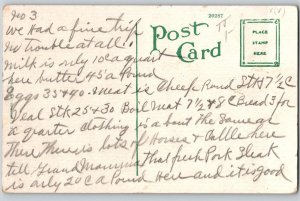 No 3
20287
Post Card
PLACE STAMP HERE
we had a fine trip
no trouble at all.
milk is only 10¢ a quart
here butter 45¢ a Pound
Eggs 35 & 40. meat is cheap Round Stk 17½ C
Veal Stk 25 & 30 Boil meat 7½ & 8¢ Bread 3 for
a quarter clothing is about the same as
There's lots of Horses & Cattle here
tell Grand Mamma that fresh Pork Steak
is only 20¢ a Pound here and it is good